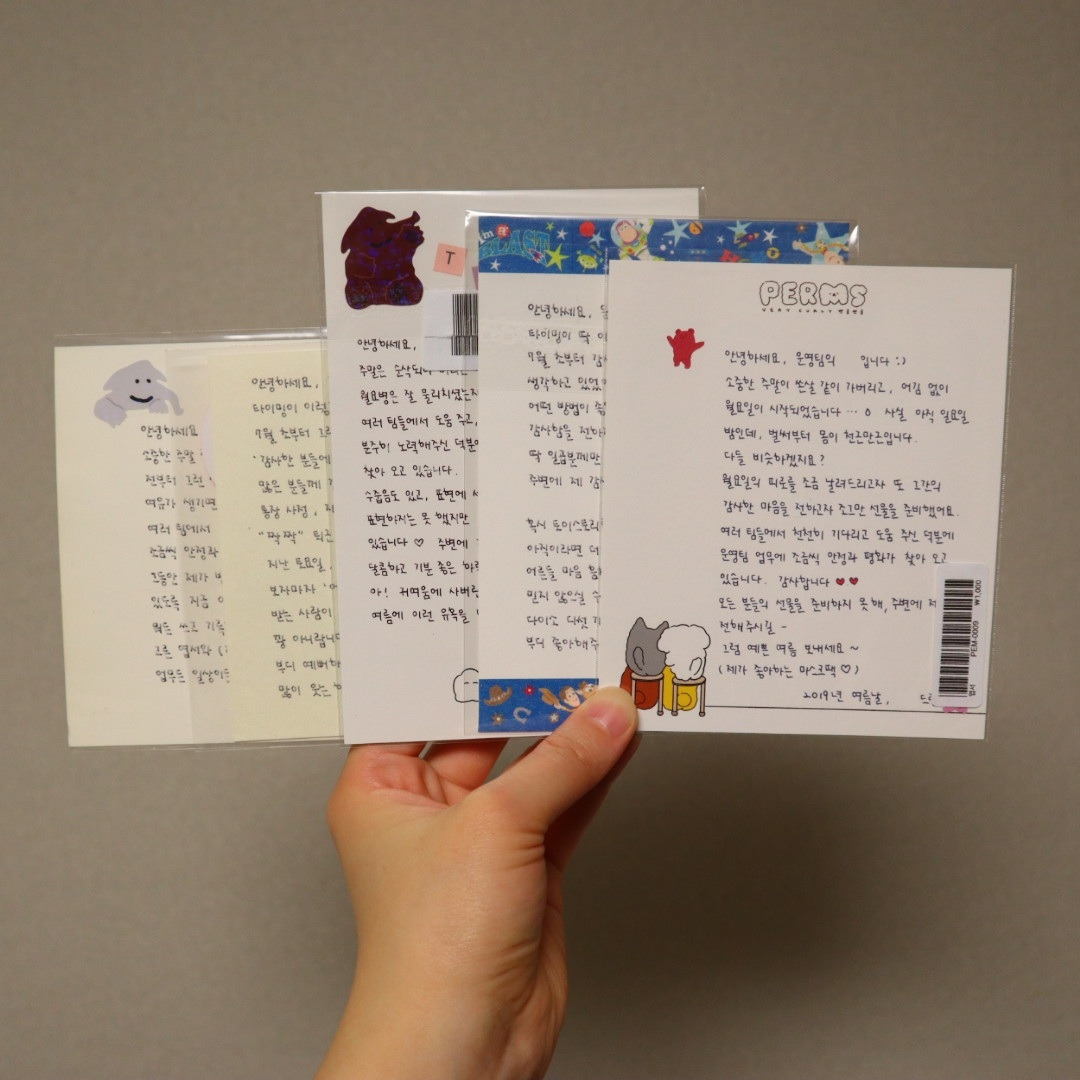 안녕하세요
소중한 주말
전부터 그런
여유가 생기면
여러 팀에서
조금씩 안정과
그동안 제가
있도록 지금
업무든 일상이든
안녕하세요,
타이밍이 이렇
7월 초부터 그
감사한 분들에
많은 분들께
통장 사정,
"짝짝"
지난 토요일,
보자마자
받는 사람이
짱 아니랍니다
부디 예뻐하
많이 웃는
T
안녕하세요,
주말은 순삭되어
월요병은 잘 물리치셨는지
여러 팀들에서 도움 주고,
분주히 노력해주신 덕분에
찾아 오고 있습니다.
수줍음도 있고, 표현에 서
표현하지는 못 했지만
있습니다 ♡ 주변에
달콤하고 기분 좋은 하루
아! 귀여움에 사버린
여름에 이런 유혹을
BLAST
안녕하세요,
타이밍이 딱
7월 초부터 감사
생각하고 있었
어떤 방법이
감사함을 전하
딱 일곱분께만
주변에 제 감사
혹시 토이스토리
아직이라면 더
어른들 마음
믿지 않으실 수
다이소 다섯
부디 좋아해주
PERMS
VERY CURLY 뽀글뽀글
안녕하세요, 운영팀의 입니다 :)
소중한 주말이 쏜살 같이 가버리고, 어김 없이
월요일이 시작되었습니다 … ㅎ 사실 아직 일요일
밤인데, 벌써부터 몸이 천근만근입니다.
다들 비슷하겠지요?
월요일의 피로를 조금 날려드리고자 또 그간의
감사한 마음을 전하고자 조그만 선물을 준비했어요.
여러 팀들에서 천천히 기다리고 도움 주신 덕분에
운영팀 업무에 조금씩 안정과 평화가 찾아 오고
있습니다. 감사합니다 ♥♥
모든 분들의 선물을 준비하지 못해, 주변에 저
전해주시길 -
그럼 예쁜 여름 보내세요 ~
(제가 좋아하는 마스크팩 ♡)
2019년 여름날,
엽서
PEM-0009
₩1,000